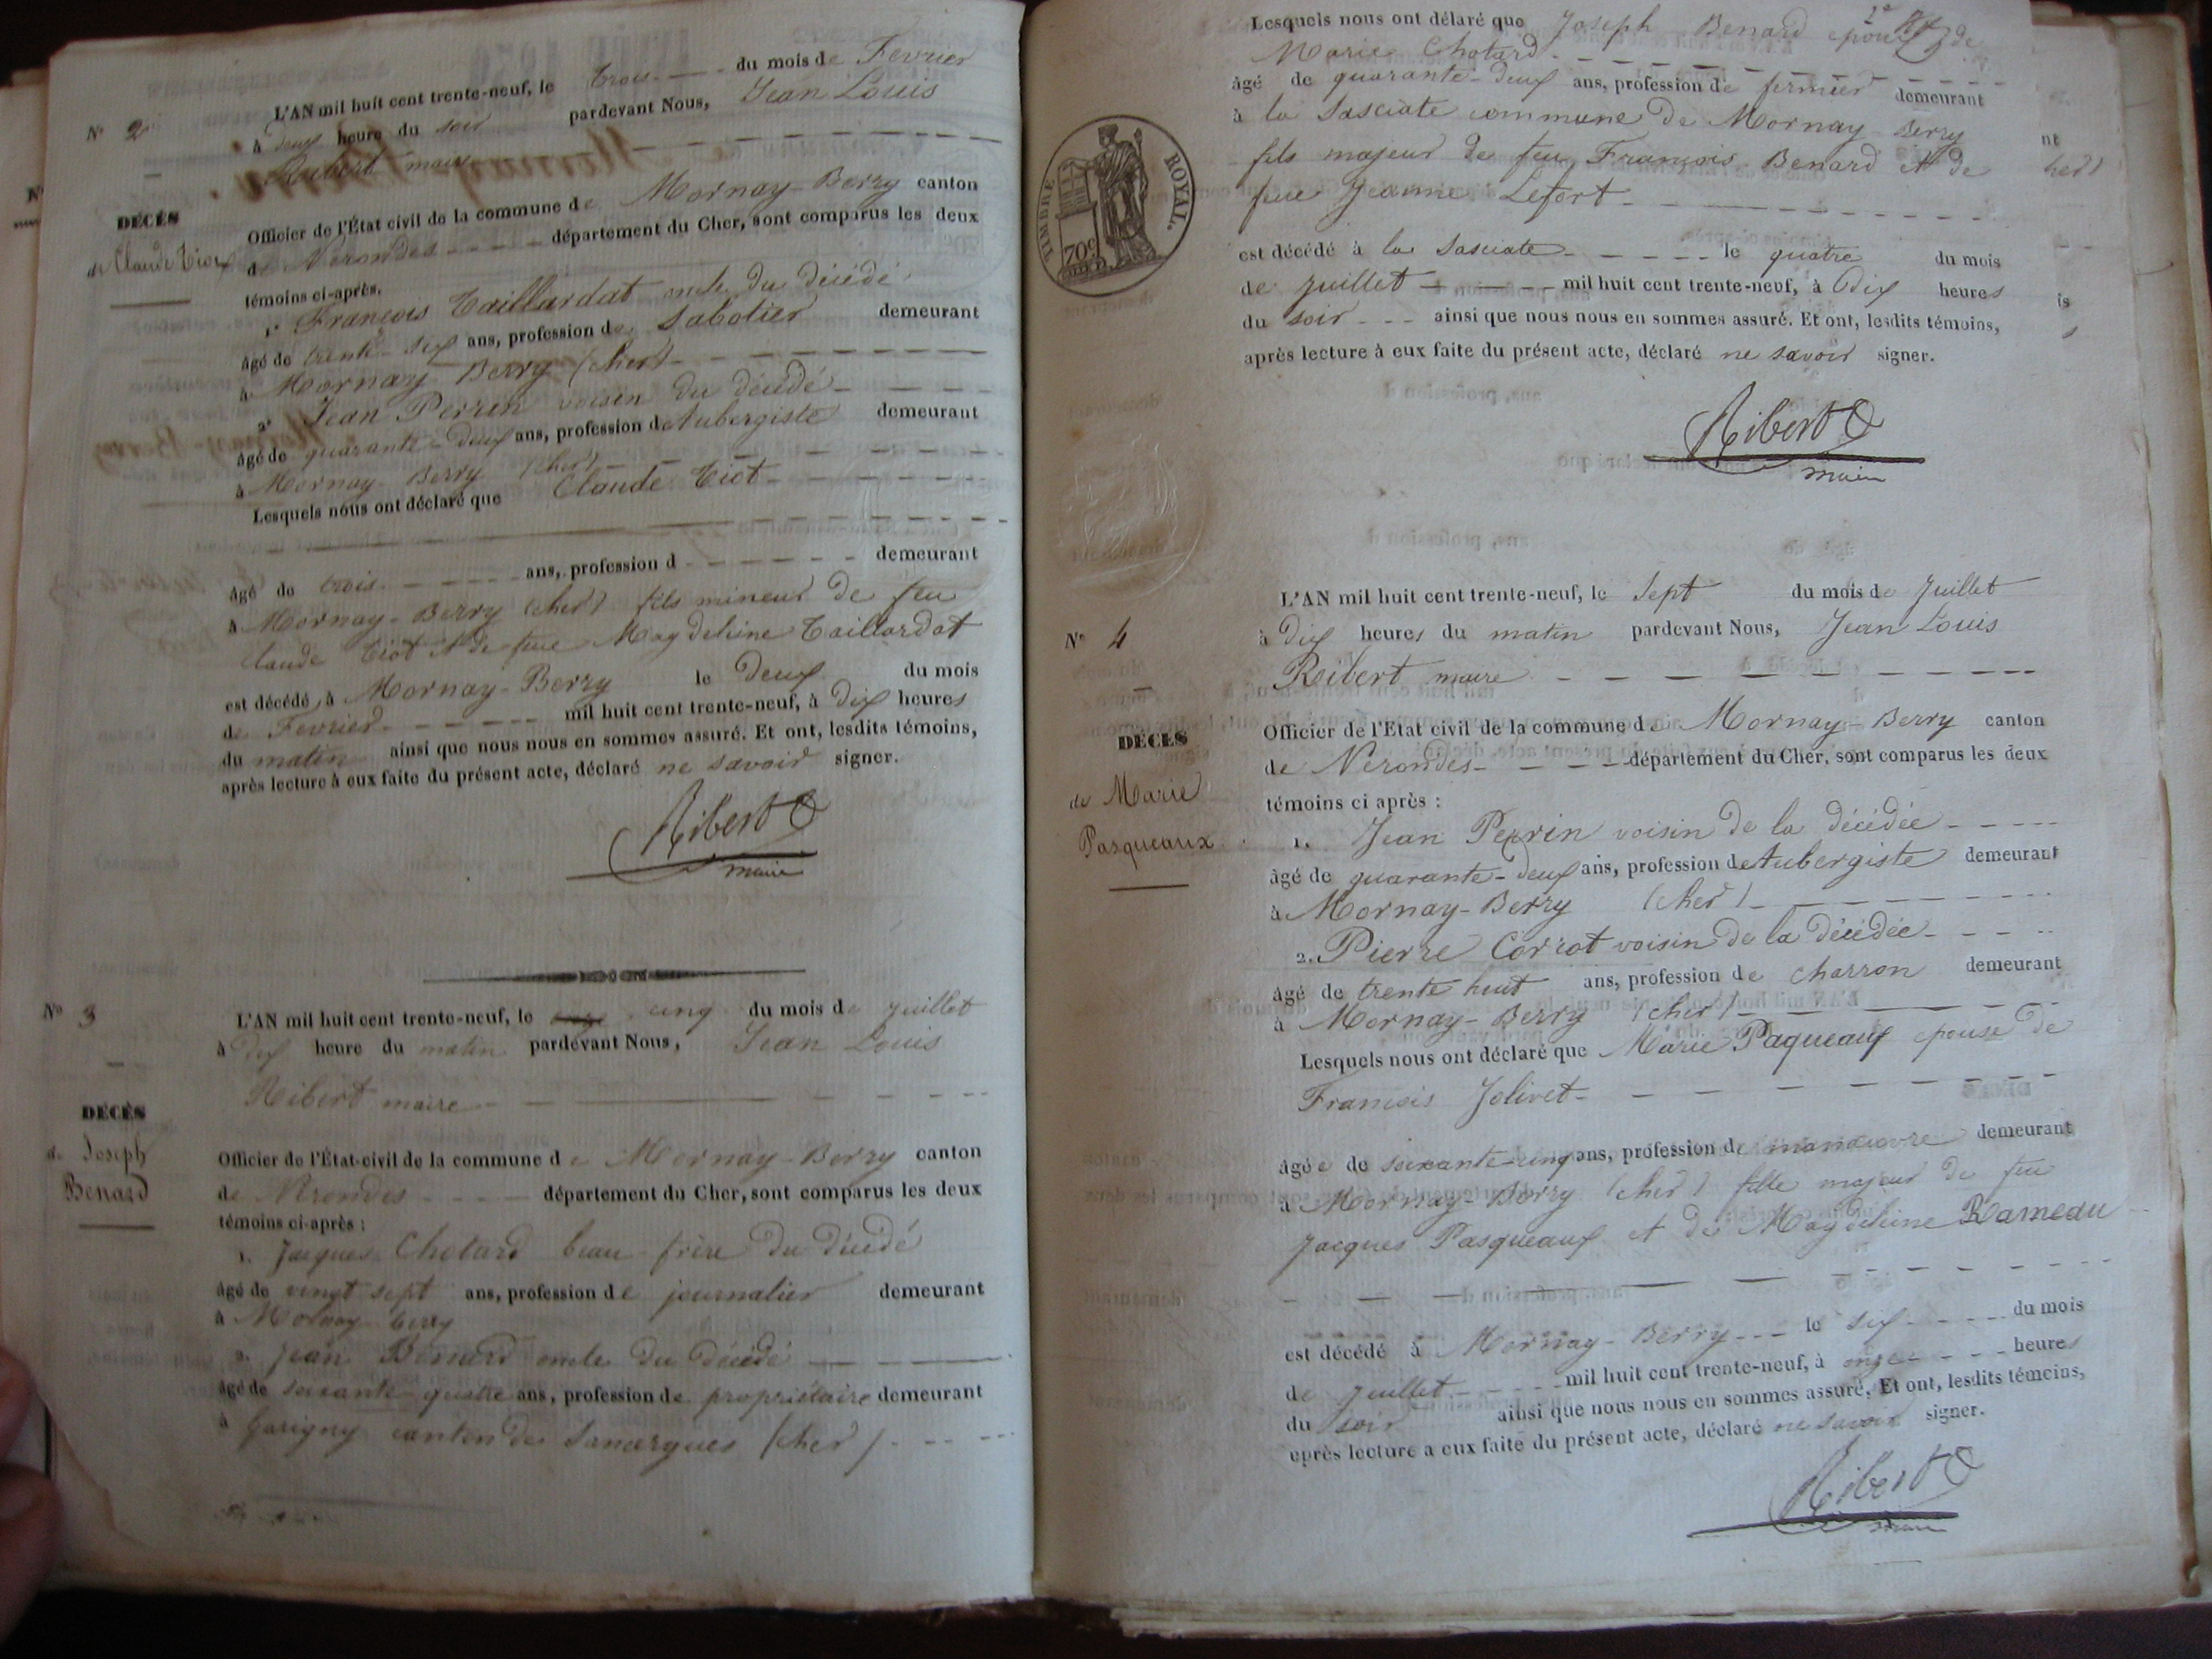 L'AN mil huit cent trente-neuf, le trois du mois de Fevrier
N° 2
à deux heure du soir pardevant Nous, Jean Louis
Ribert maire
DÉCÈS
de Claude Tiot
Officier de l'État civil de la commune de Mornay-Berry canton
de Nerondes département du Cher, sont comparus les deux
témoins ci-après.
1° François Taillardat oncle du décédé
âgé de trente-six ans, profession de Sabotier demeurant
à Mornay Berry (cher)
2° Jean Perrin voisin du décédé
âgé de quarante-deux ans, profession de Aubergiste demeurant
à Mornay-Berry (cher)
Lesquels nous ont déclaré que Claude Tiot
âgé de trois ans, profession d demeurant
à Mornay-Berry (cher) fils mineur de feu
Claude Tiot et de feue Magdeleine Taillardat
est décédé à Mornay-Berry le deux du mois
de Fevrier mil huit cent trente-neuf, à dix heures
du matin ainsi que nous nous en sommes assuré. Et ont, lesdits témoins,
après lecture à eux faite du présent acte, déclaré ne savoir signer.
Ribert
maire
N° 3
L'AN mil huit cent trente-neuf, le cinq du mois de juillet
à dix heure du matin pardevant Nous, Jean Louis
Ribert maire
DÉCÈS
de Joseph
Benard
Officier de l'État-civil de la commune de Mornay-Berry canton
de Nerondes département du Cher, sont comparus les deux
témoins ci-après :
1. Jacques Chotard beau-frère du décédé
âgé de vingt sept ans, profession de journalier demeurant
à Mornay-Berry
2. jean Benard oncle du décédé
âgé de soixante-quatre ans, profession de propriétaire demeurant
à Garigny canton de Sancergues (cher)
Lesquels nous ont délaré que Joseph Benard epoux de
Marie Chotard
âgé de quarante-deux ans, profession de fermier demeurant
à la Sasciate commune de Mornay-Berry
fils majeur de feu François Benard et de
feue Jeanne Lefort
TIMBRE ROYAL.
70c
est décédé à la Sasciate le quatre du mois
de juillet mil huit cent trente-neuf, à dix heures
du soir ainsi que nous nous en sommes assuré. Et ont, lesdits témoins,
après lecture à eux faite du présent acte, déclaré ne savoir signer.
Ribert
maire
L'AN mil huit cent trente-neuf, le Sept du mois de juillet
N° 4
à dix heures du matin pardevant Nous, Jean Louis
Ribert maire
DÉCÈS
de Marie
Pasqueaux
Officier de l'État civil de la commune de Mornay-Berry canton
de Nerondes département du Cher, sont comparus les deux
témoins ci après :
1. Jean Perrin voisin de la décédée
âgé de quarante-deux ans, profession de Aubergiste demeurant
à Mornay-Berry (cher)
2. Pierre Corrat voisin de la décédée
âgé de trente huit ans, profession de charron demeurant
à Mornay-Berry (cher)
Lesquels nous ont déclaré que Marie Paqueaux epouse de
François Jolivet
âgée de soixante-cinq ans, profession de manoeuvre demeurant
à Mornay-Berry (cher) fille majeur de feu
jacques Pasqueaux et de Magdeleine Rameau
est décédé à Mornay-Berry le six du mois
de juillet mil huit cent trente-neuf, à onze heures
du soir ainsi que nous nous en sommes assuré. Et ont, lesdits témoins,
après lecture a eux faite du présent acte, déclaré ne savoir signer.
Ribert
maire